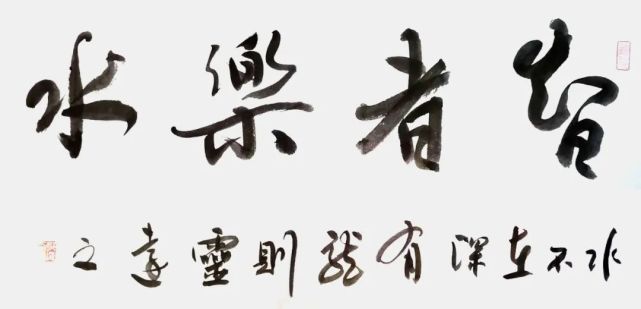 智者樂水
水不在深有龍則靈之